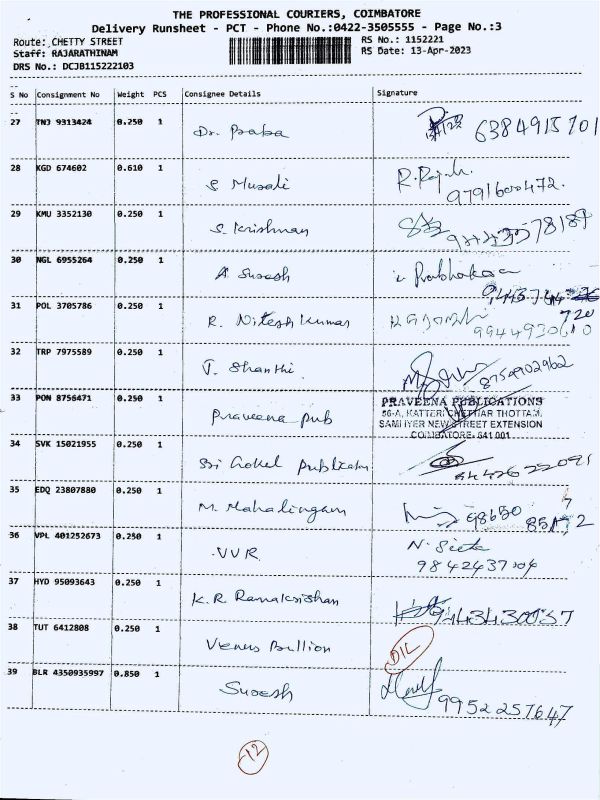 THE PROFESSIONAL COURIERS, COIMBATORE
Delivery Runsheet - PCT - Phone No.:0422-3505555 - Page No.:3
Route: CHETTY STREET RS No.: 1152221
Staff: RAJARATHINAM RS Date: 13-Apr-2023
DRS No.: DCJB115222103
S No Consignment No Weight PCS Consignee Details Signature
27 TNJ 9313424 0.250 1 Dr. Praba 6384915701
28 KGD 674602 0.610 1 S Murali 9791600472.
29 KMU 3352130 0.250 1 S. Krishnan
30 NGL 6955264 0.250 1 A Suresh Prabhakaran
31 POL 3705786 0.250 1 R. Nitesh Kumar 720
9944930610
32 TRP 7975589 0.250 1 J. Shanthi 8754902962
33 PON 8756471 0.250 1 Praveena pub PRAVEENA PUBLICATIONS
56-A, KATTERI CHETTIAR THOTTAM,
SAMI IYER NEW STREET EXTENSION
COIMBATORE- 641 001
34 SVK 15021955 0.250 1 Sri Gokul Publication
35 EDQ 23807880 0.250 1 M. Mahalingam 98650
36 VPL 401252673 0.250 1 VVR N. Sieta
9842437004
37 HYD 95093643 0.250 1 K.R. Ramakrishan 9443430037
38 TUT 6412808 0.250 1 Venus Bullion DIL
39 BLR 4350935997 0.850 1 Suresh 9952257647
-12